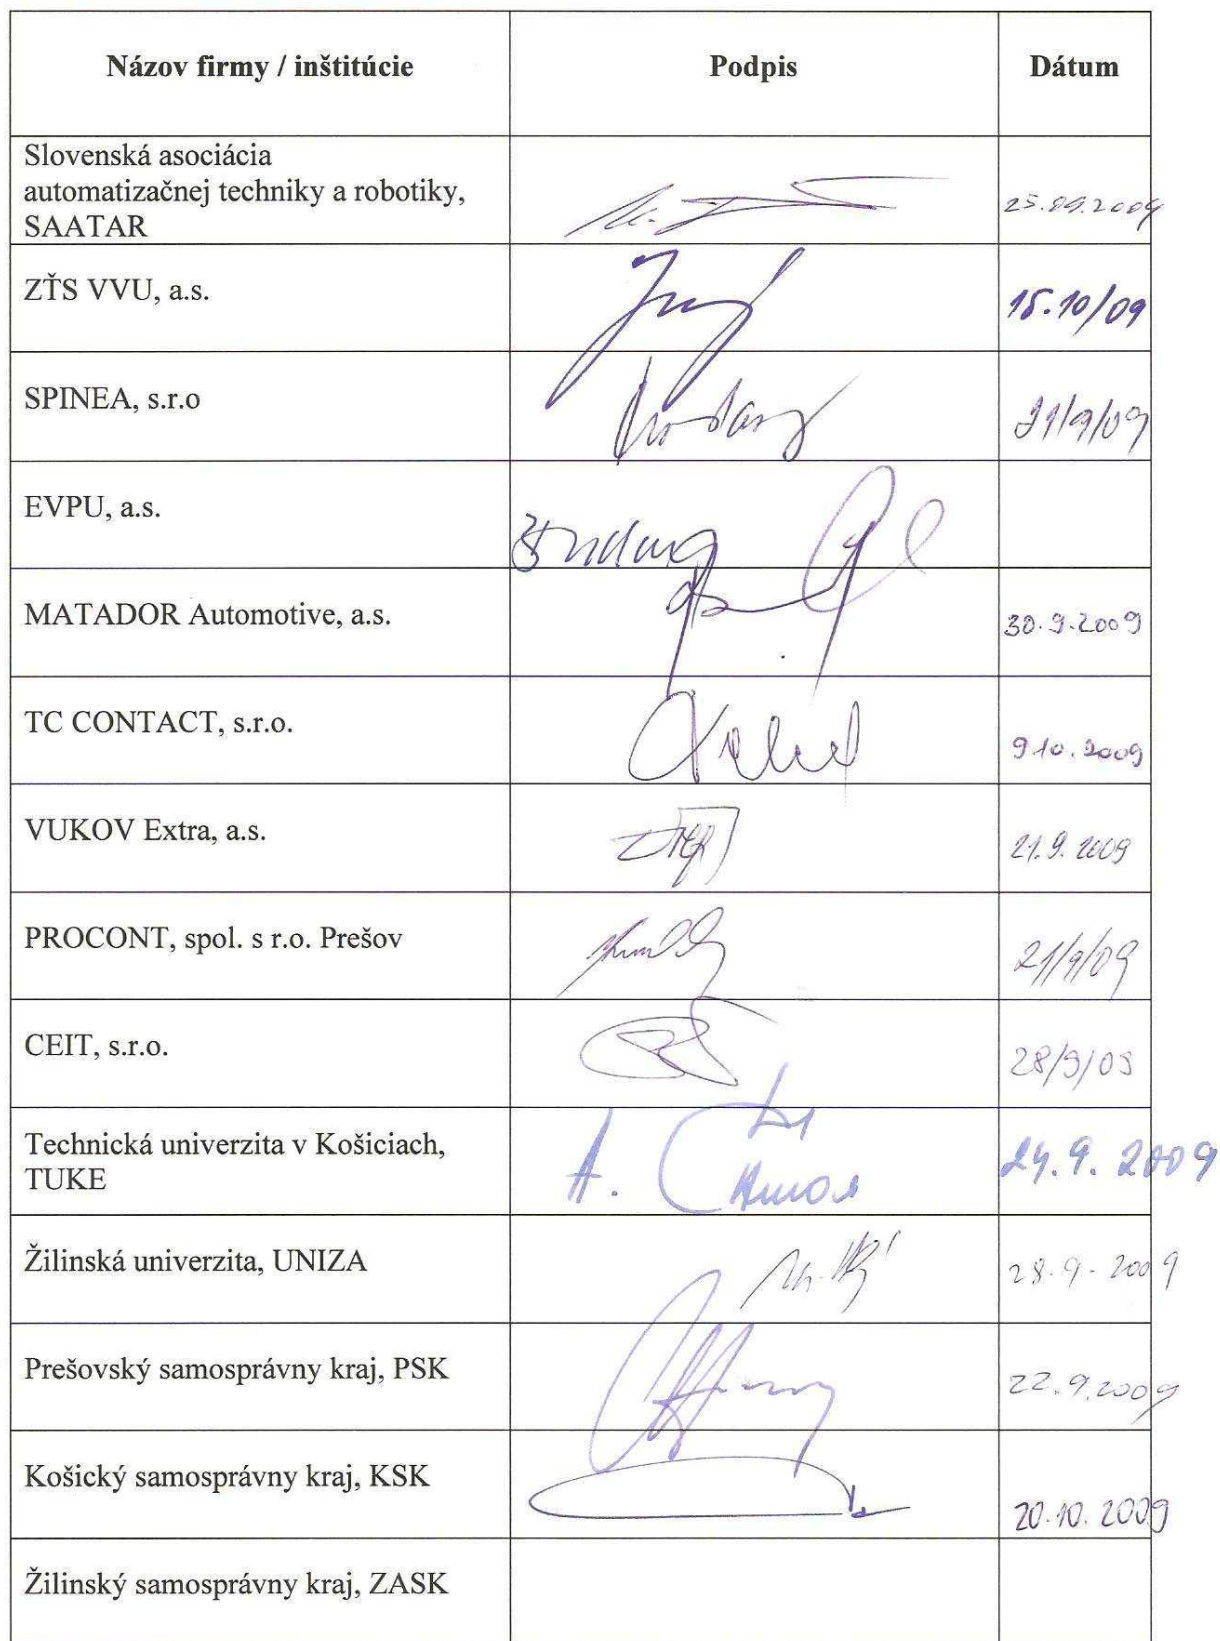 Názov firmy / inštitúcie
Podpis
Dátum
Slovenská asociácia
automatizačnej techniky a robotiky,
SAATAR
25.09.2009
ZŤS VVU, a.s.
15.10/09
SPINEA, s.r.o
21/9/09
EVPU, a.s.
MATADOR Automotive, a.s.
30.9.2009
TC CONTACT, s.r.o.
9.10.2009
VUKOV Extra, a.s.
21.9.2009
PROCONT, spol. s r.o. Prešov
21/9/09
CEIT, s.r.o.
28/9/09
Technická univerzita v Košiciach,
TUKE
A.
24.9.2009
Žilinská univerzita, UNIZA
28.9-2009
Prešovský samosprávny kraj, PSK
22.9.2009
Košický samosprávny kraj, KSK
20.10.2009
Žilinský samosprávny kraj, ZASK